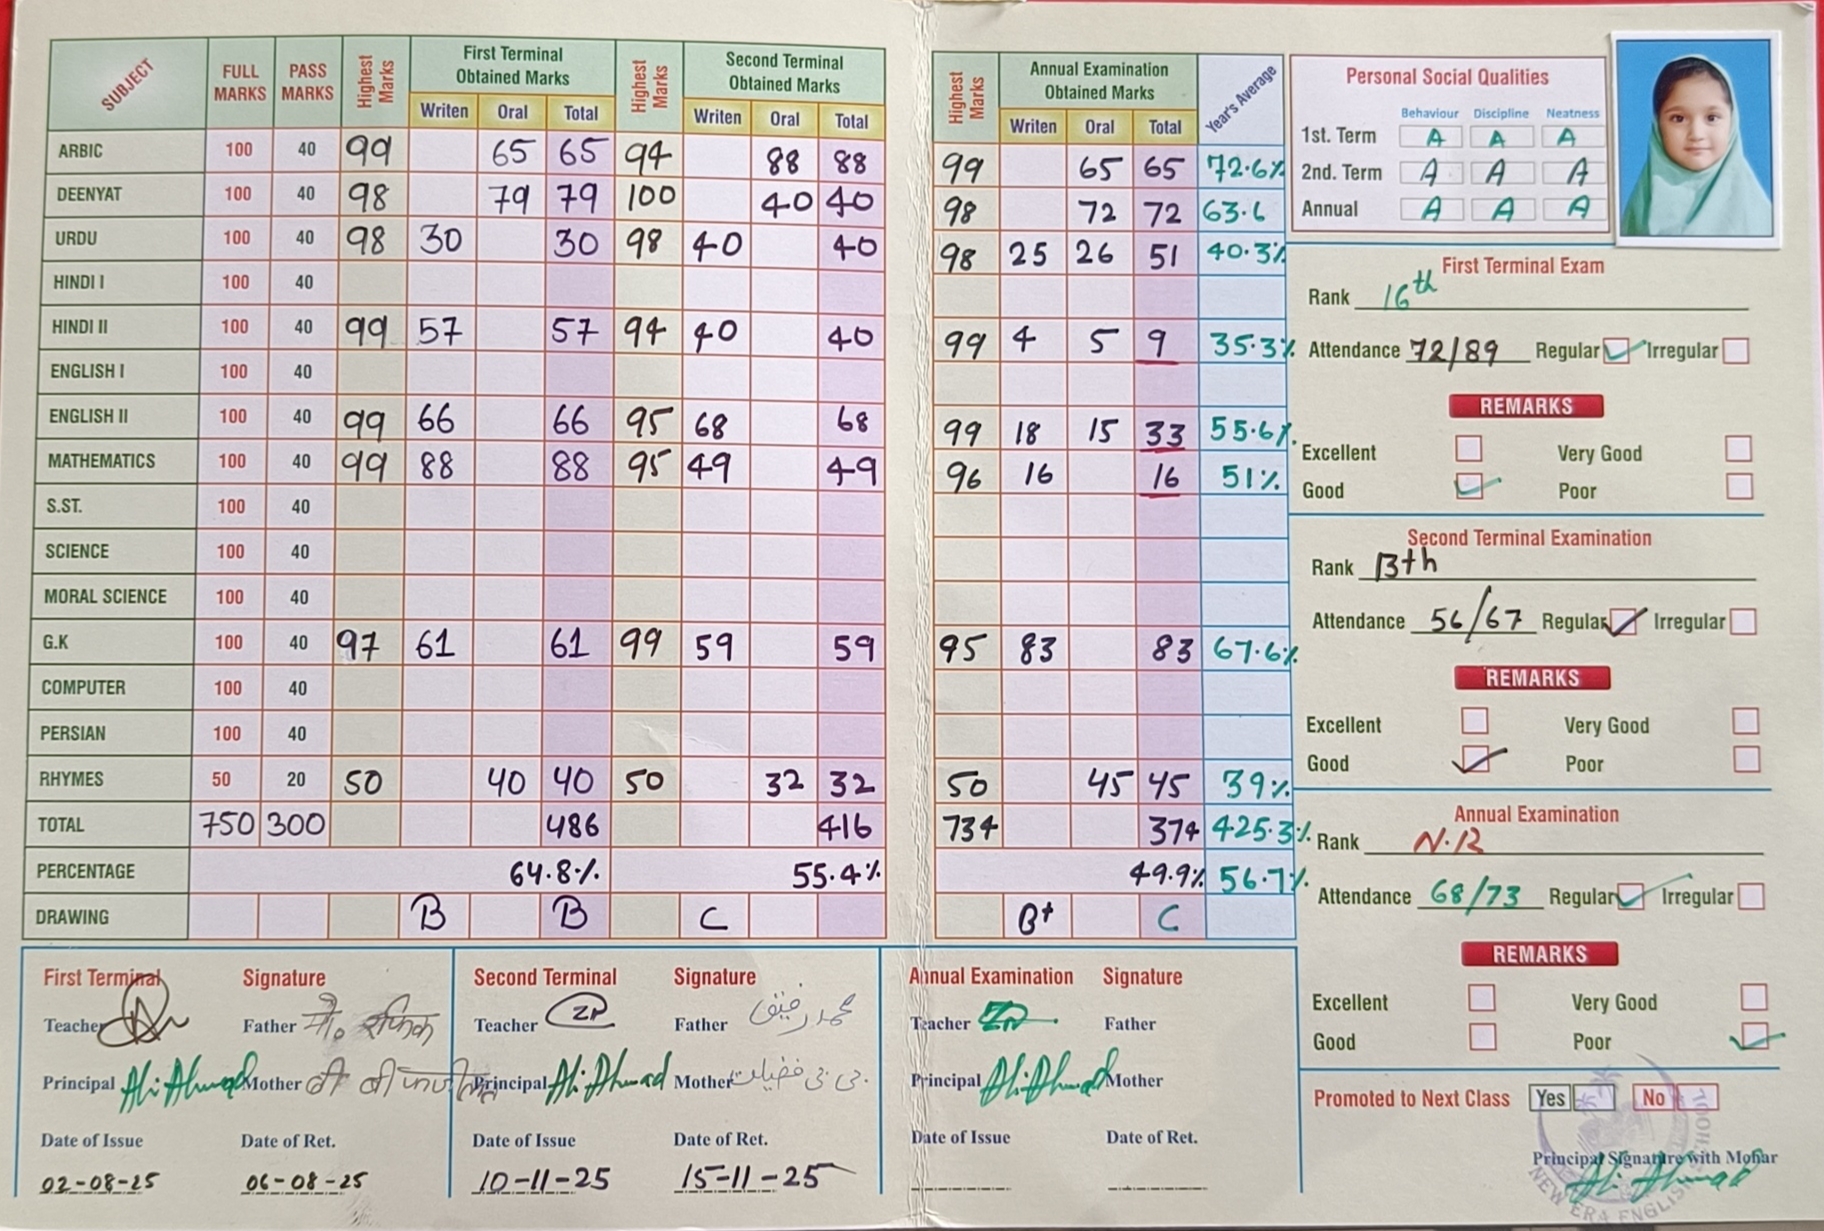 SUBJECT FULL MARKS PASS MARKS Highest Marks First Terminal Obtained Marks Highest Marks Second Terminal Obtained Marks Highest Marks Annual Examination Obtained Marks Year's Average
Writen Oral Total Writen Oral Total Writen Oral Total
ARBIC 100 40 99 65 65 94 88 88 99 65 65 72.6%
DEENYAT 100 40 98 79 79 100 40 40 98 72 72 63.6
URDU 100 40 98 30 30 98 40 40 98 25 26 51 40.3%
HINDI I 100 40
HINDI II 100 40 99 57 57 94 40 40 99 4 5 9 35.3%
ENGLISH I 100 40
ENGLISH II 100 40 99 66 66 95 68 68 99 18 15 33 55.6%
MATHEMATICS 100 40 99 88 88 95 49 49 96 16 16 51%
S.ST. 100 40
SCIENCE 100 40
MORAL SCIENCE 100 40
G.K 100 40 97 61 61 99 59 59 95 83 83 67.6%
COMPUTER 100 40
PERSIAN 100 40
RHYMES 50 20 50 40 40 50 32 32 50 45 45 39%
TOTAL 750 300 486 416 734 374 425.3%
PERCENTAGE 64.8% 55.4% 49.9% 56.7%
DRAWING B B C B+ C
First Terminal Signature
Teacher Father मो० रफिक
Principal Ali Ahmad Mother बी बी
Date of Issue Date of Ret.
02-08-25 06-08-25
Second Terminal Signature
Teacher ZP Father محمد رفیق
Principal Ali Ahmad Mother بی بی فضیلت
Date of Issue Date of Ret.
10-11-25 15-11-25
Annual Examination Signature
Teacher Father
Principal Ali Ahmad Mother
Date of Issue Date of Ret.
Personal Social Qualities
Behaviour Discipline Neatness
1st. Term A A A
2nd. Term A A A
Annual A A A
First Terminal Exam
Rank 16th
Attendance 72/89 Regular Irregular
REMARKS
Excellent Very Good
Good Poor
Second Terminal Examination
Rank 13th
Attendance 56/67 Regular Irregular
REMARKS
Excellent Very Good
Good Poor
Annual Examination
Rank N.R
Attendance 68/73 Regular Irregular
REMARKS
Excellent Very Good
Good Poor
Promoted to Next Class Yes No
Principal Signature with Mohar
Ali Ahmad
NEW ERA ENGLISH